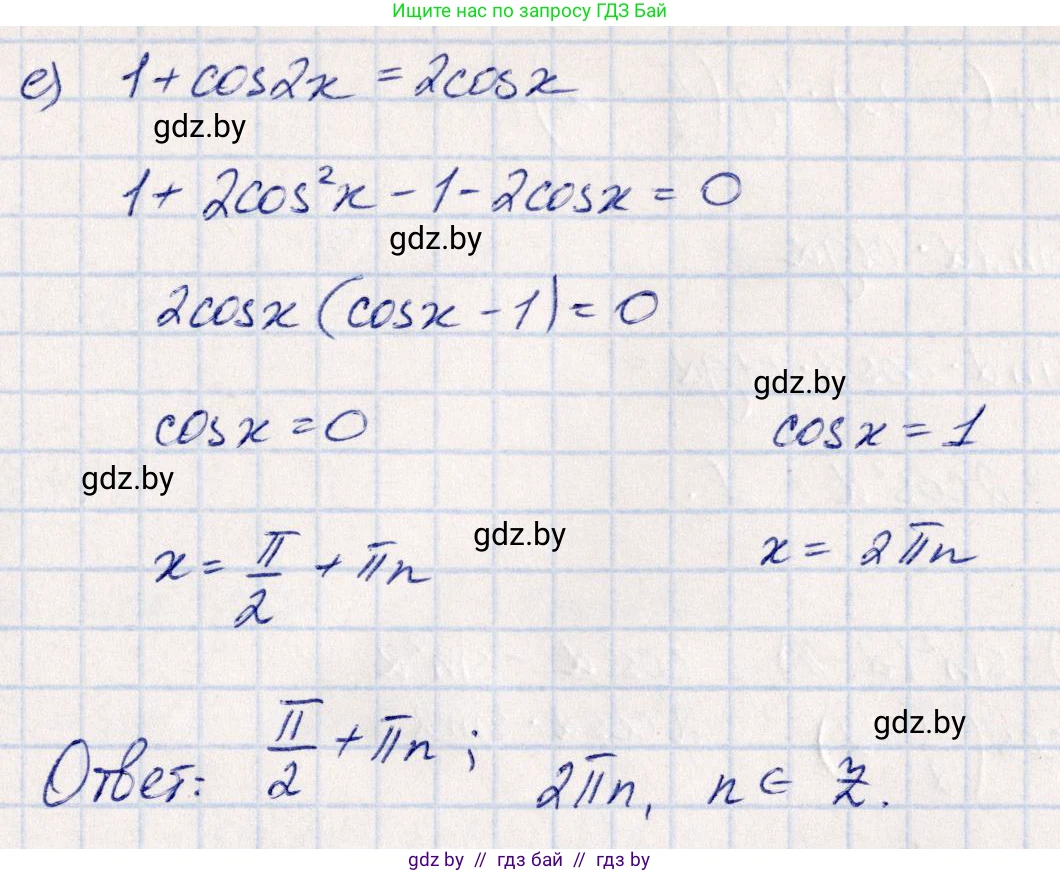 Ищите нас по запросу ГДЗ Бай
е) 1 + cos2x = 2cosx
gdz.by
1 + 2cos²x - 1 - 2cosx = 0
gdz.by
2cosx (cosx - 1) = 0
gdz.by
cosx = 0 cosx = 1
gdz.by
gdz.by
x = π/2 + πn x = 2πn
gdz.by
Ответ: π/2 + πn; 2πn, n ∈ Z.
gdz.by // гдз бай // гдз by